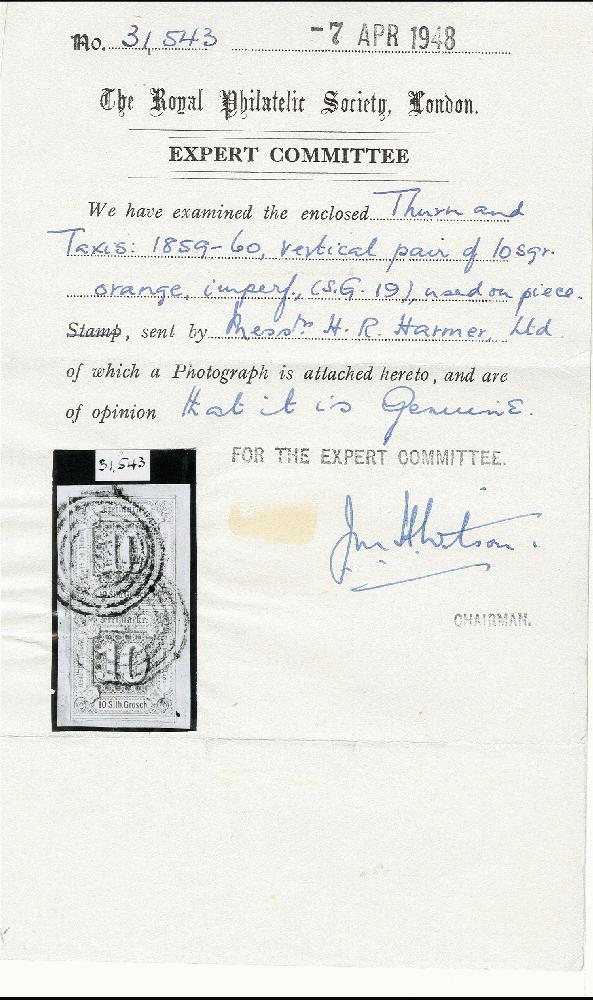 No. 31,543 -7 APR 1948
The Royal Philatelic Society, London.
EXPERT COMMITTEE
We have examined the enclosed Thurn and
Taxis: 1859-60, vertical pair of 10sgr.
orange, imperf., (S.G. 19), used on piece.
Stamp, sent by Messrs H. R. Harmer, Ltd.
of which a Photograph is attached hereto, and are
of opinion that it is Genuine.
31,543
FOR THE EXPERT COMMITTEE.
CHAIRMAN.
10
10
10 Silb. Grosch.